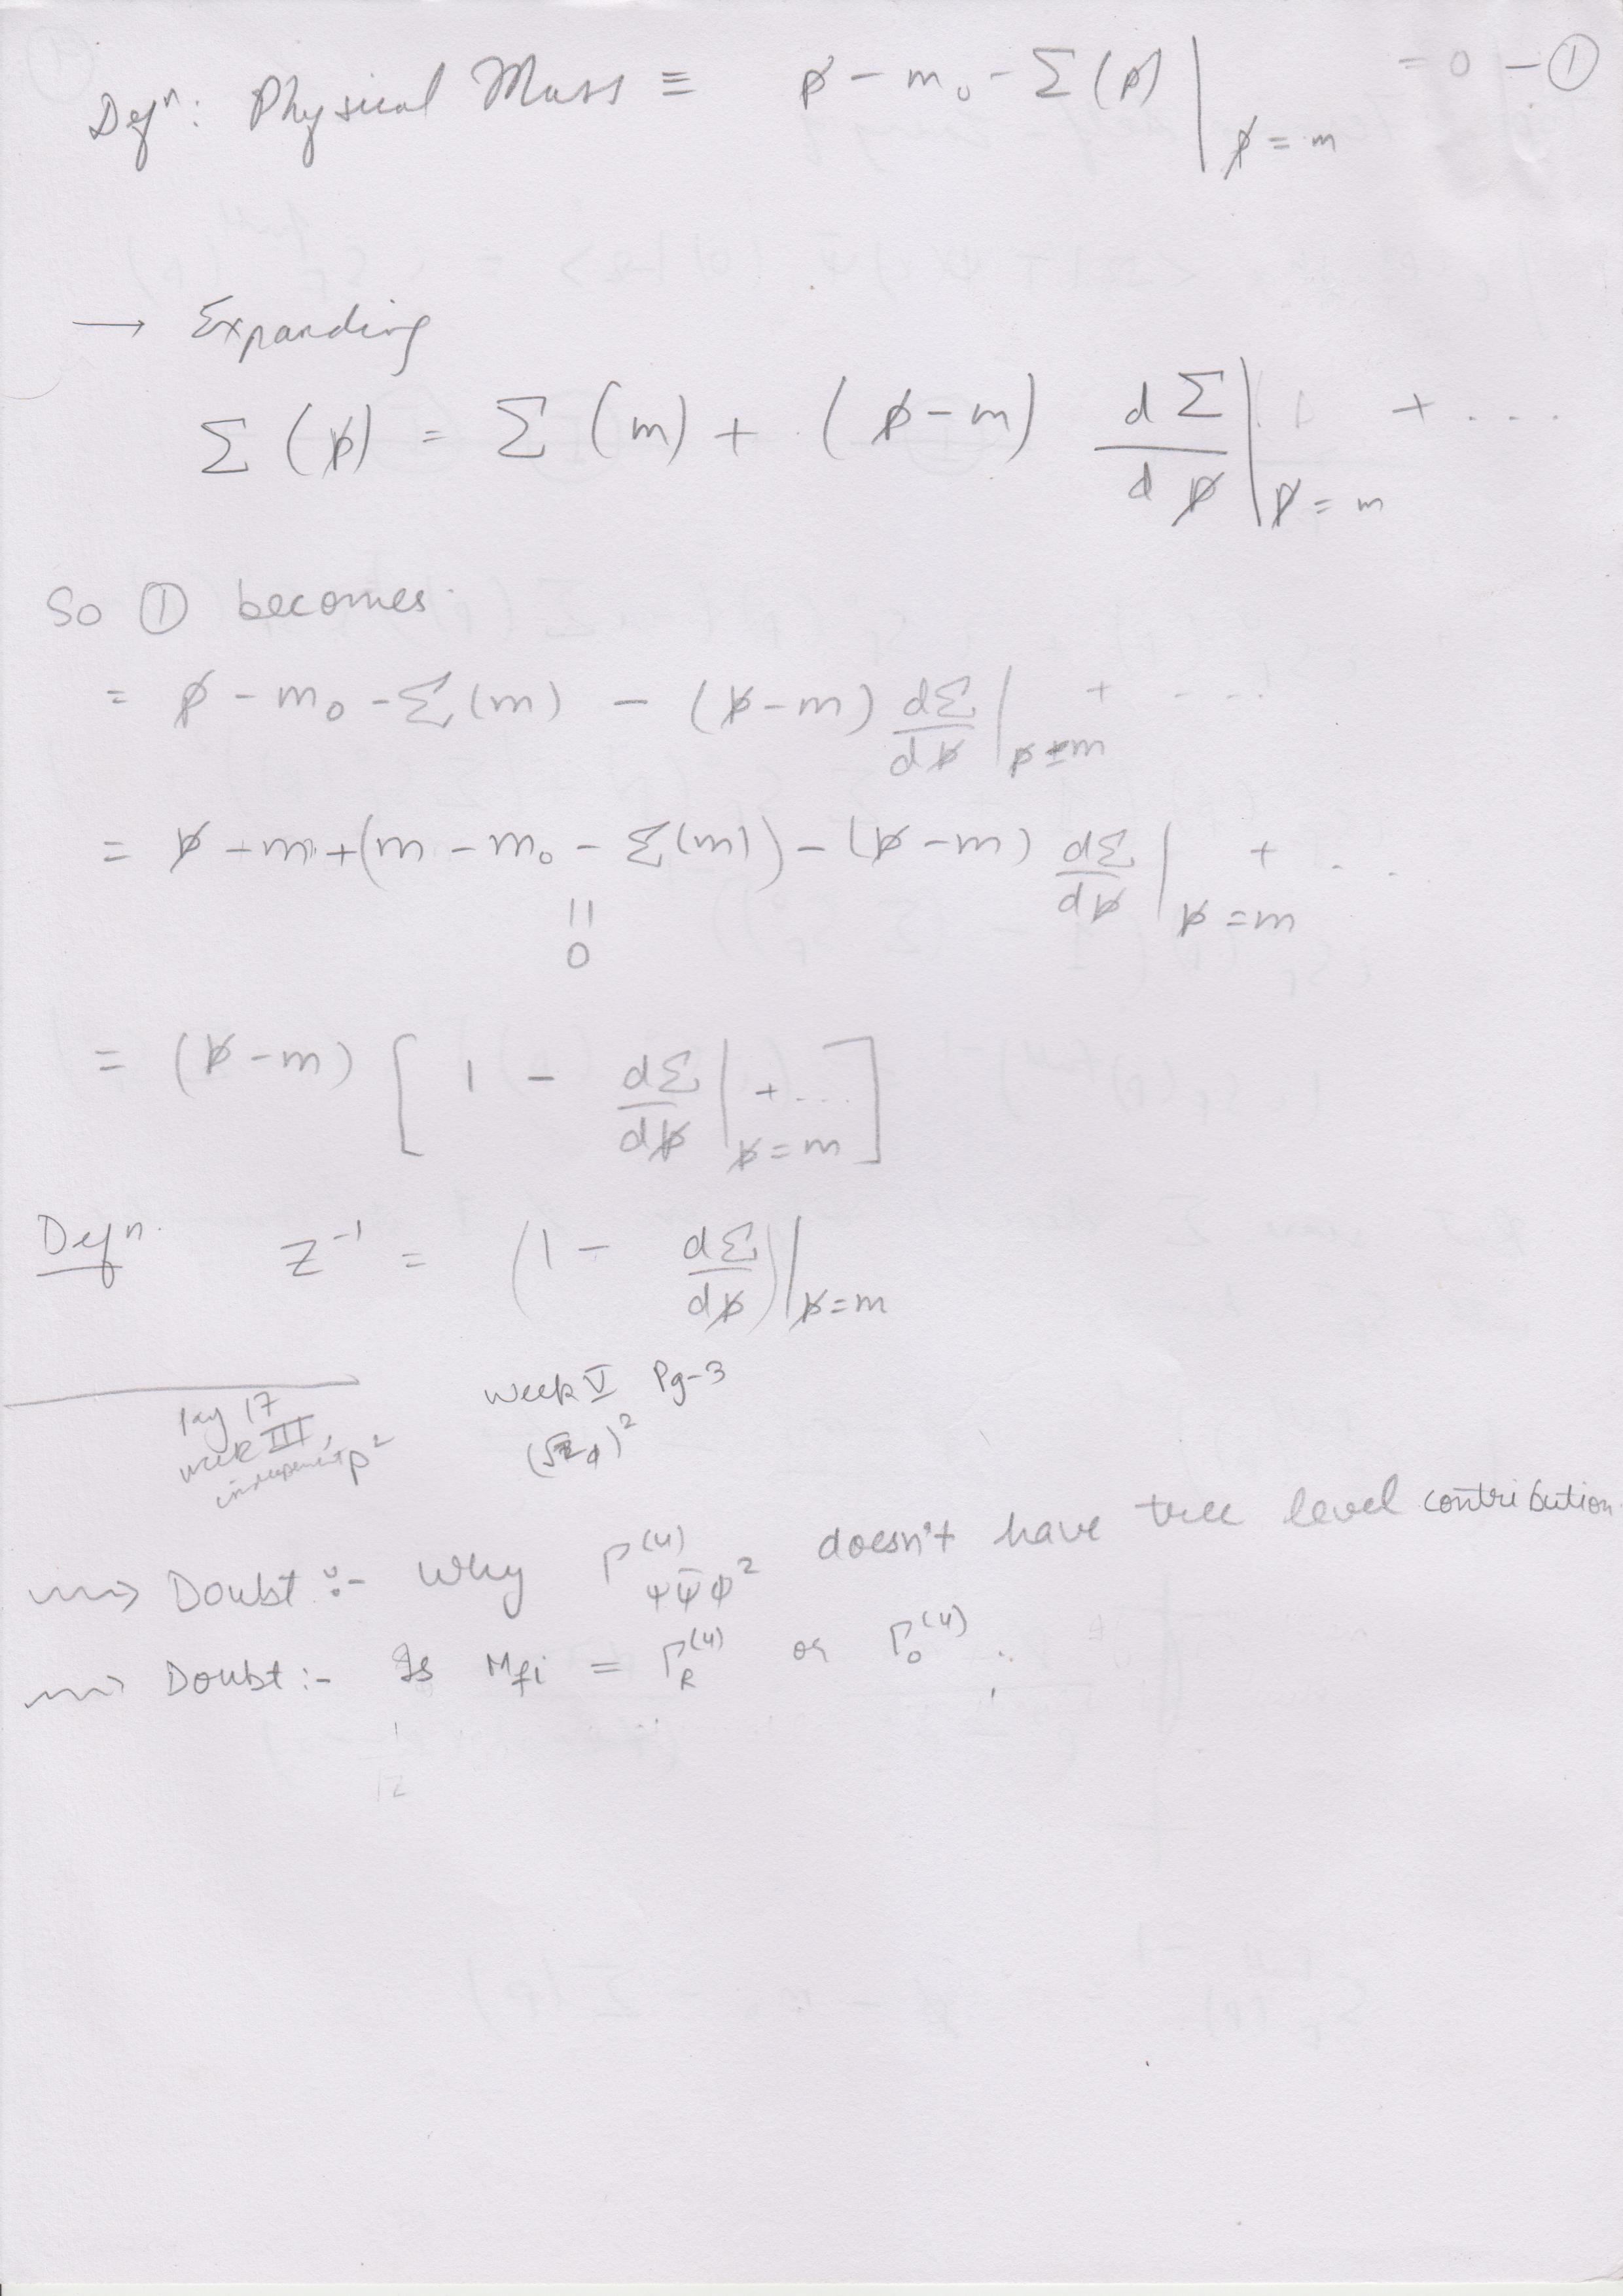 Defⁿ: Physical Mass ≡ p̸ - m₀ - Σ(p̸) |_{p̸ = m} = 0 - ①
→ Expanding
Σ(p̸) = Σ(m) + (p̸ - m) dΣ/dp̸ |_{p̸ = m} + ....
So ① becomes
= p̸ - m₀ - Σ(m) - (p̸ - m) dΣ/dp̸ |_{p̸ = m} + ....
= p̸ - m + (m - m₀ - Σ(m)) - (p̸ - m) dΣ/dp̸ |_{p̸ = m} + ..
||
0
= (p̸ - m) [ 1 - dΣ/dp̸ |_{p̸ = m} + ... ]
Defⁿ. Z⁻¹ = (1 - dΣ/dp̸) |_{p̸ = m}
week V Pg-3
17
week III,
independent p²
⇝ Doubt :- Why Γ^{(4)}_{ψψ̄φ²} doesn't have tree level contribution
⇝ Doubt :- Is M_{fi} = Γ_R^{(4)} or Γ_0^{(4)}